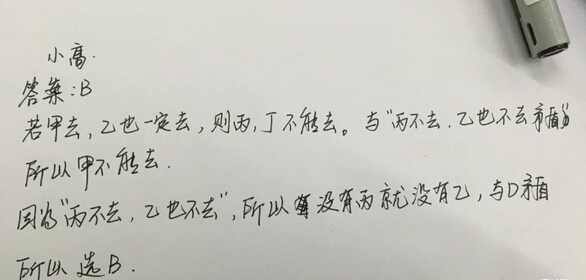 小高.
答案:B
若甲去,乙也一定去,则丙,丁不能去。与"丙不去.乙也不去矛盾"
所以甲不能去.
因为"丙不去,乙也不去",所以没有丙就没有乙,与D矛盾
所以选B.